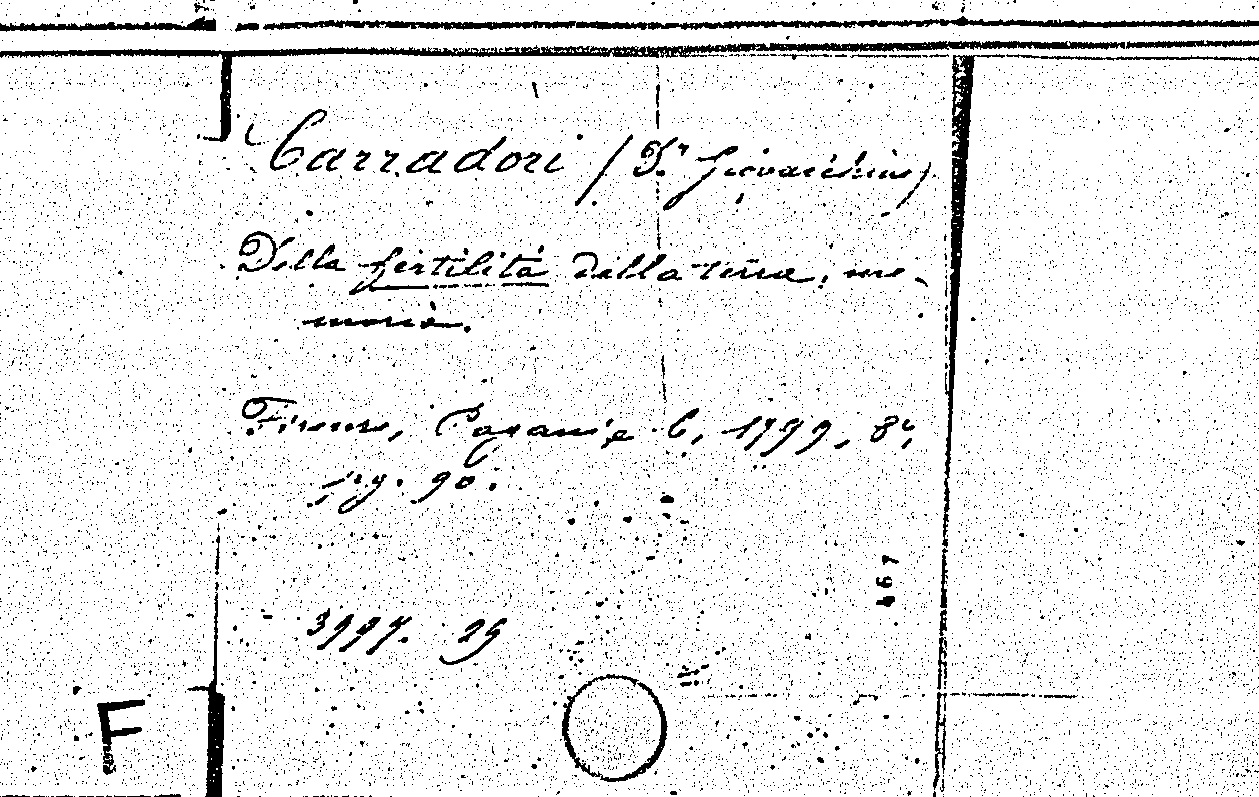 Carradori (Dr Giovacchino)
Della fertilità della terra, me-
moria.
Firenze, Pagani e C, 1799, 8°,
pg. 90.
29
467
F